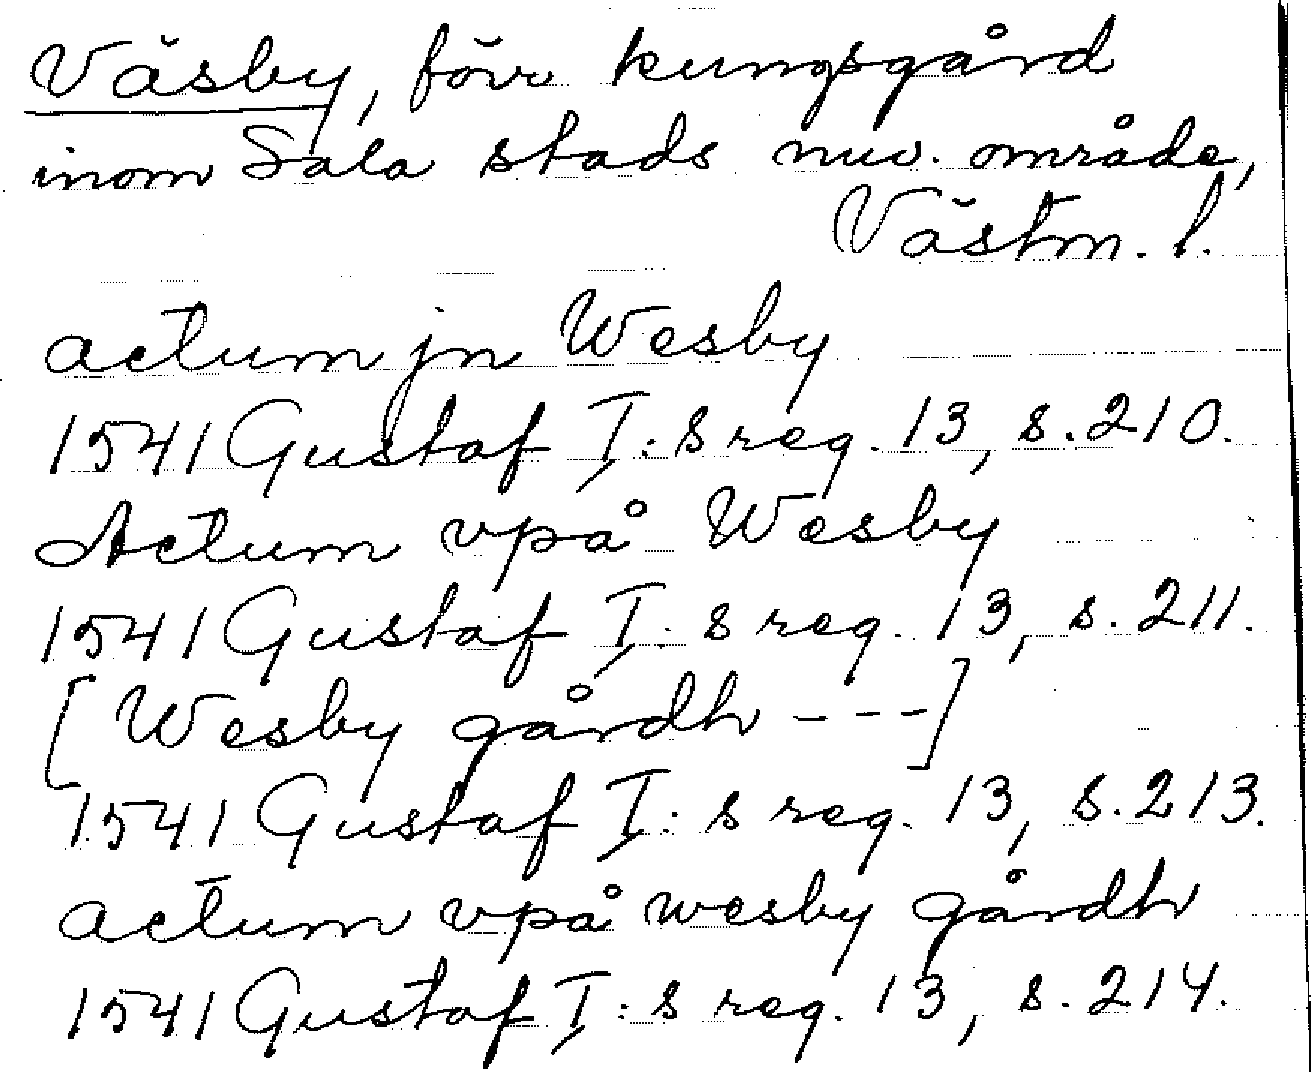 Väsby, förr kungsgård
inom Sala stads nuv. område,
Västm. l.
actum jn Wesby
1541 Gustaf I:s reg. 13, s. 210.
Actum vpå Wesby
1541 Gustaf I:s reg. 13, s. 211.
[Wesby gårdh ---]
1541 Gustaf I:s reg. 13, s. 213.
actum vpå wesby gårdh
1541 Gustaf I:s reg. 13, s. 214.